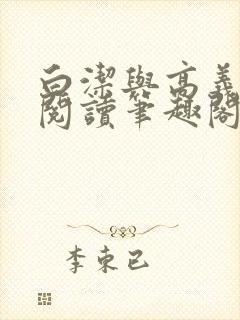 白潔與高義
閱讀筆趣閣
李東已